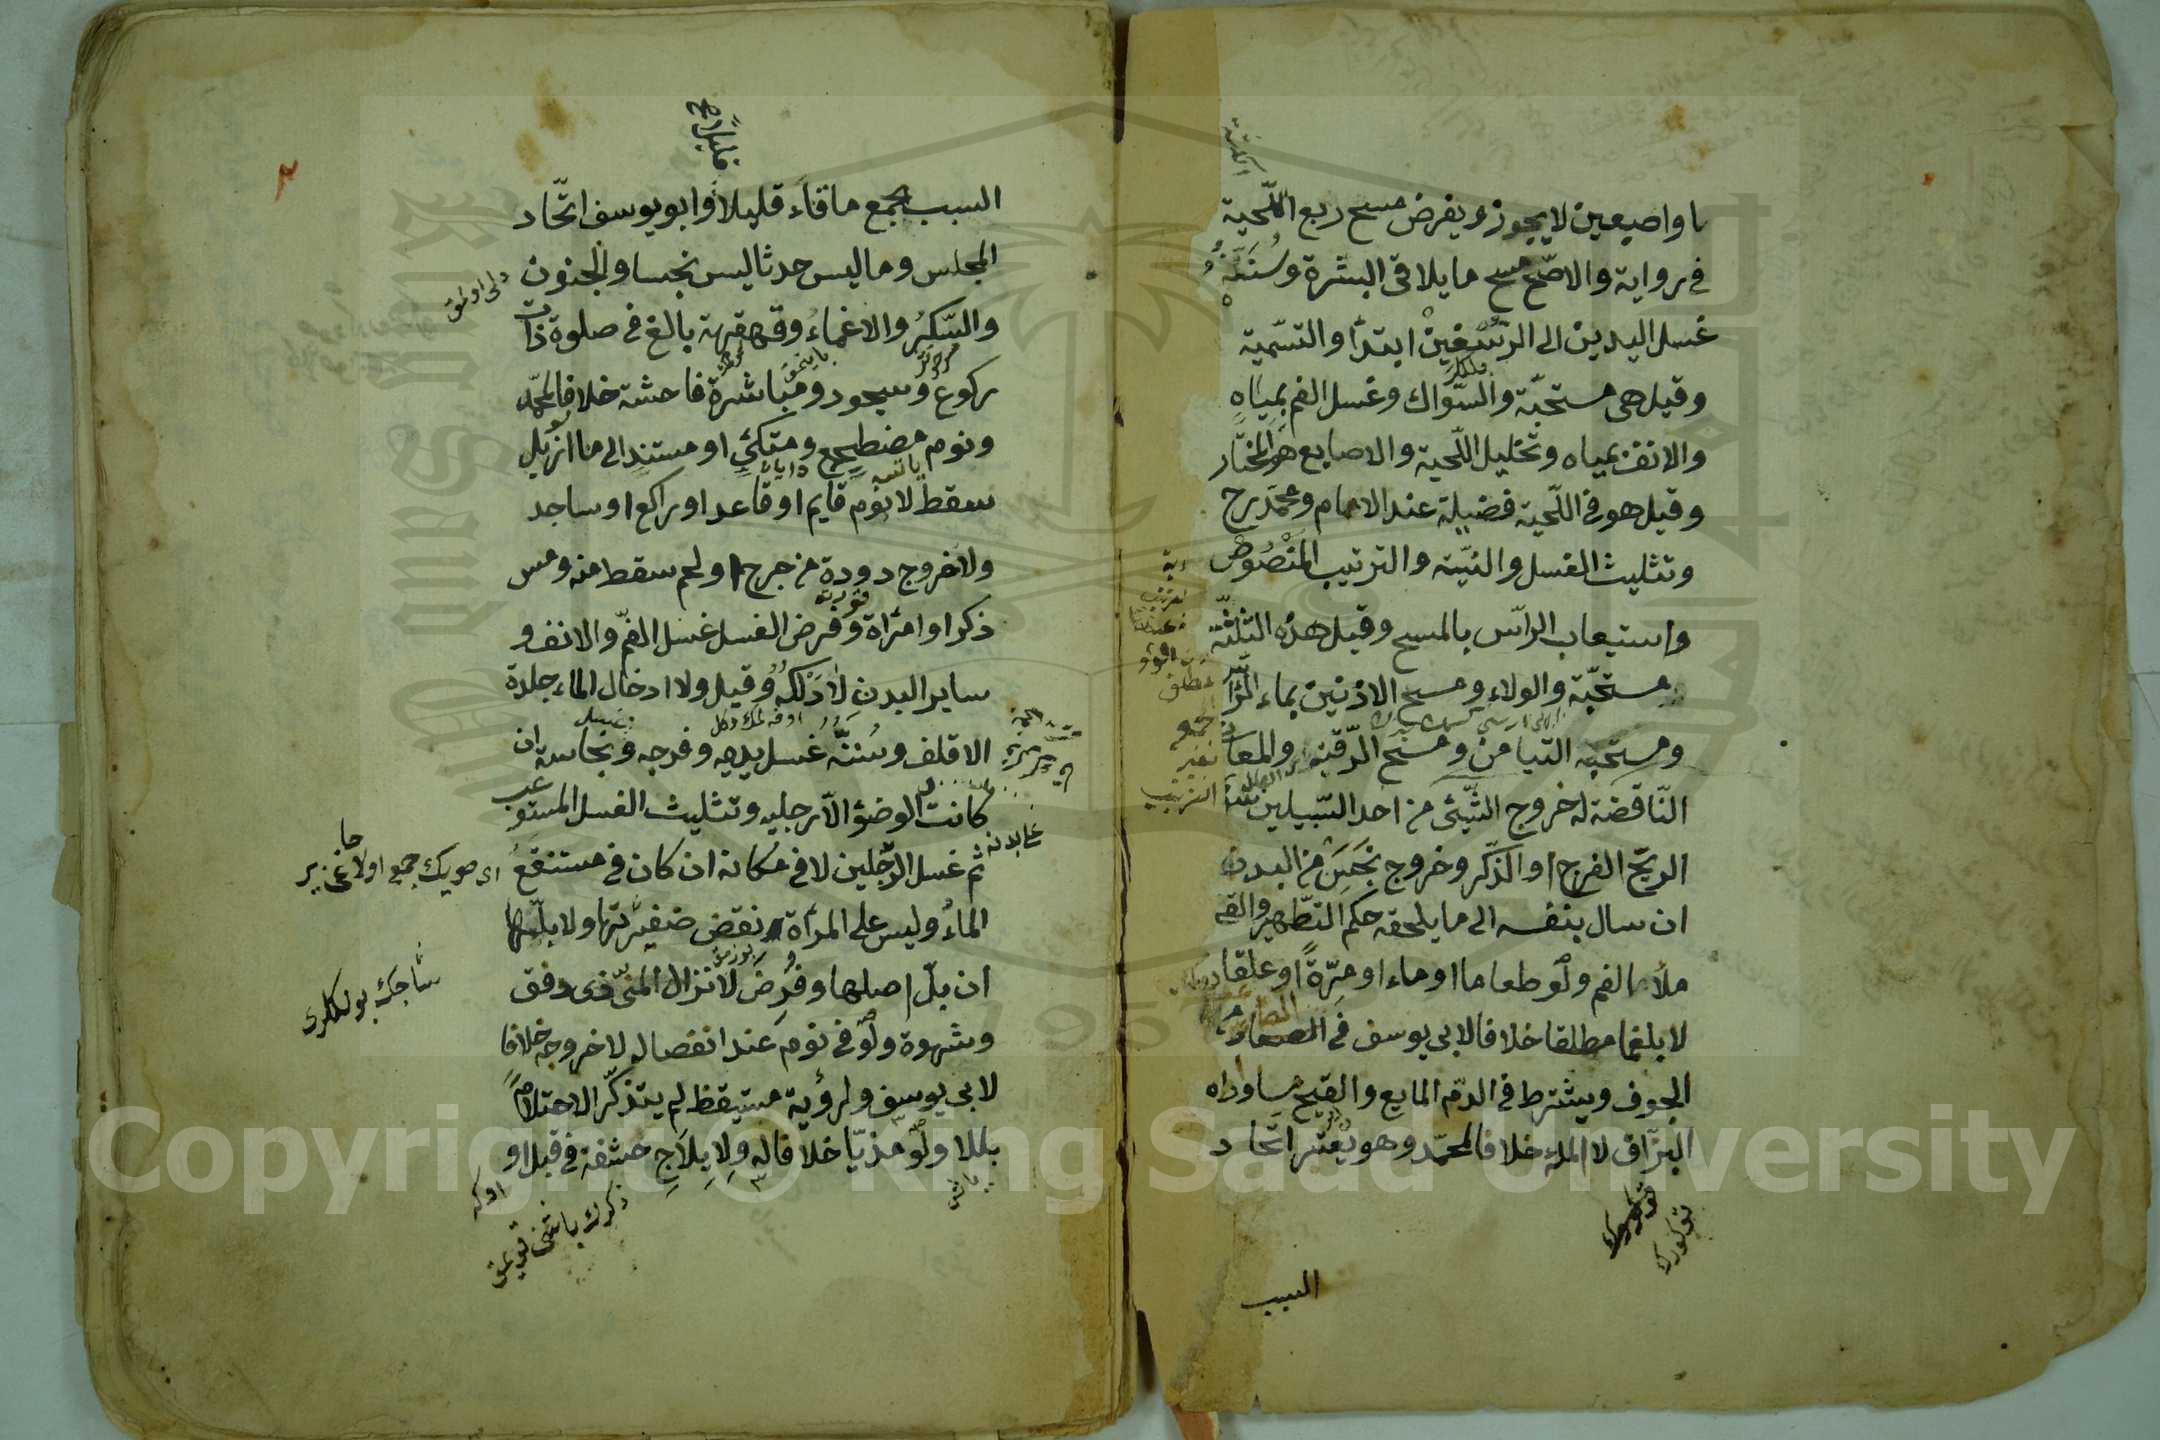 او اصبعين لا يجوز ويفرض مسح ربع اللّحية
في رواية والاصّح مسح ما يلاقى البشرة وسُنَنُهُ
غسل اليدين الى الرّسْغينْ ابتدآ والتسّمية
وقيل هى مستحبّة والسّواك وغسل الفم بمياهٍ
والانف بمياه وتخليل اللّحية والاصابع هو المختار
وقيل هو في اللّحية فضيلة عند الامام ومحمّد رح
وتثليث الغسل والنيّة والترتيب المَنْصُوصْ
واستيعاب الرّاس بالمسح وقيل هذه الثلثّة
مستحبّة والولاء ومسح الاذنين بماء الرّأس
ومستحبّه التيامن ومسح الرّقبه والمعانى
النّاقضة له خروج الشّيئ من احد السّبيلين
الريح الفرج او الذّكر وخروج نَجَسٍ من البدن
ان سال بنفسه الى ما يلحقه حكم التطّهير والقئ
ملأ الفم ولو طعاما او ماء او مرّةً او علقا
لا بلغما مطلقا خلافا لابى يوسف في الصاعد من
الجوف ويشترط في الدّم المايع والقيح مساواة
البزّاق لا الملء خلافا لمحمّد وهو يعتبر اتّحاد
السبب
السبب لجمع ما قاء قليلا وابو يوسف اتّحاد
المجلس وما ليس حدثا ليس نجسا والجنون
والسّكرُ والاغماءُ وقهقهة بالغ في صلوة ذات
ركوع وسجود ومباشرة فاحشة خلافا لمحمّد
ونوم مضطجع ومتكئ او مستند الى ما لو ازيل
سقط لا نوم قايم او قاعد او راكع او ساجد
ولا خروج دودة من جرح او لحم سقط منه ومس
ذكر او امرأة وفرض الغسل غسل الفمّ والانف و
ساير البدن لا دَلْكُهُ وقيل ولا ادخال الماء جلدة
الاقلف وسُنَنُّهُ غسل يديه وفرجه ونجاسة ان
كانت الوضؤ الاّ رجليه وتثليث الغسل المستوعب
ثم غسل الرّجلين لا في مكانه ان كان في مستنقع
الماءُ وليس على المرأة نقض ضفيرتها ولا بلّها
ان بلّ اصلها وفرِضَ لانزال المنىّ ذى دفق
وشهوة ولو في نوم عند انفصاله لا خروجه خلافا
لابى يوسف ولرؤية مستيقظ لم يتذكّر الاحتلام
بللا ولو مذيّا خلافا له ولِايِلاَجِ حشفة في قبل او
دلى اولمق
ذكرك باشنى قويمق
Copyright © King Saud University
King Saud University
1957